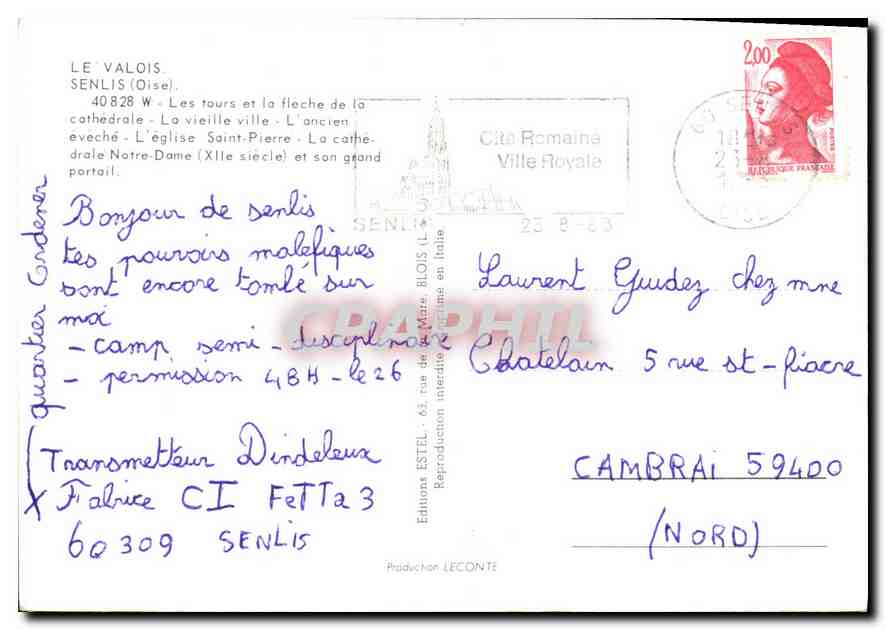 LE VALOIS.
SENLIS (Oise).
40828 W - Les tours et la flèche de la
cathédrale - La vieille ville - L'ancien
eveché - L'église Saint-Pierre - La cathé-
drale Notre-Dame (XIIe siècle) et son grand
portail.
quartier Ordener
Bonjour de senlis
tes pouvoirs maléfiques
sont encore tombé sur
moi
- camp semi - disciplinaire
- permission 48H - le 26
Transmetteur Dindeleux
Fabrice CI FeTTa 3
60309 SENLIS
Editions ESTEL - 63, rue de la Mare, BLOIS (L.
Reproduction interdite - Imprimé en Italie
Production LECONTE
Cité Romaine
Ville Royale
SENLIS 23-8-83
2,00
POSTES
REPUBLIQUE FRANÇAISE
60 SENLIS
OISE
Laurent Guidez chez mne
Chatelain 5 rue st-fiacre
CAMBRAi 59400
(NORD)
CPAPHIL